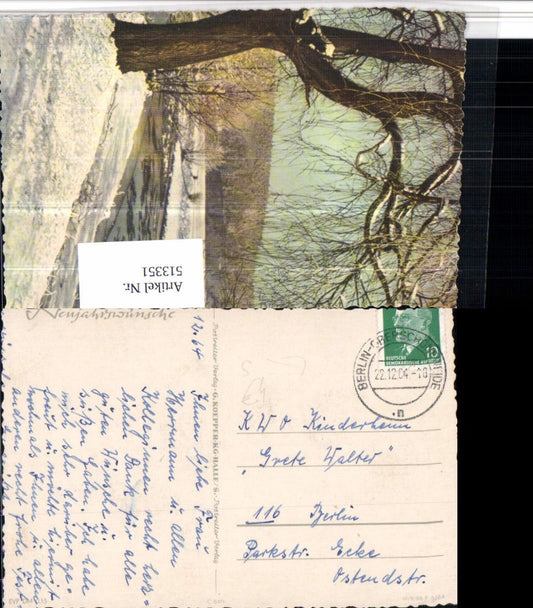 Artikel Nr.
513351
Neujahrswünsche
12.64
Ihnen liebe Frau
Herrmann u. allen
Kolleginnen recht herz-
lichen Dank für alle
guten Wünsche u.
süßen Gaben. Ich habe
mich sehr darüber ge-
freut u. möchte hiermit
nochmals Ihnen u. allen
anderen recht frohe Fest
Postreiter-Verlag · G. KOEPPER KG HALLE/S. · Postreiter-Verlag
DEUTSCHE
DEMOKRATISCHE REPUBLIK
10
BERLIN-
22.12.64-18
n
KWO Kinderheim
"Grete Walter"
116 Berlin
Parkstr. Ecke
Ostendstr.